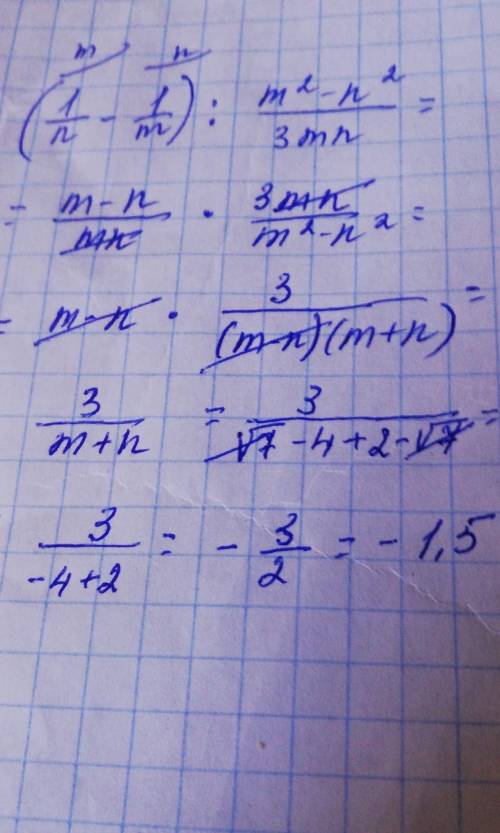 m n
(1/n - 1/m) : (m² - n²)/(3mn) =
= (m - n)/(mn) · (3mn)/(m² - n²) =
= m - n · 3/((m - n)(m + n)) =
3/(m + n) = 3/(√7 - 4 + 2 - √7) =
3/(-4 + 2) = - 3/2 = - 1,5